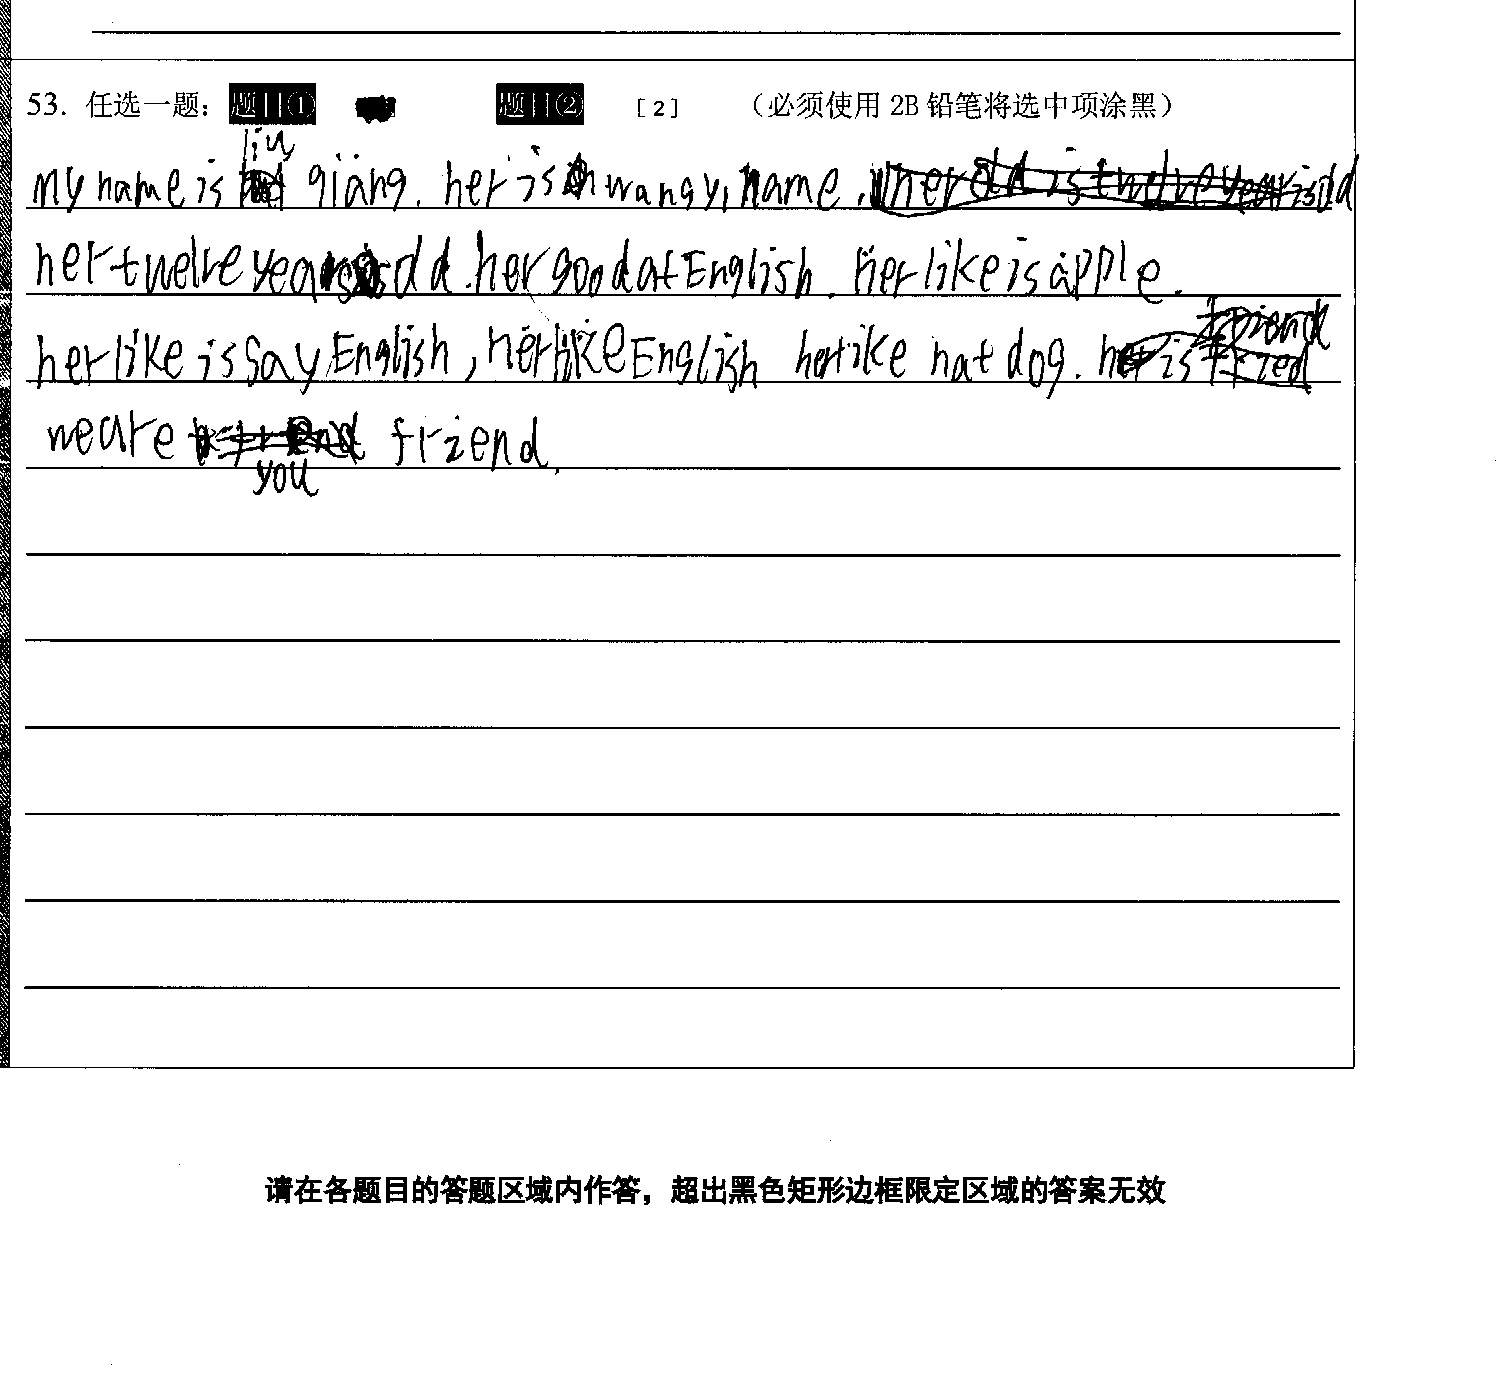 53. 任选一题： 题目① 题目② [2] （必须使用 2B 铅笔将选中项涂黑）
my name is liu qiang. her is wangyi name.
her twelve years old. her good at English. her like is apple.
her like is say English, her like English her like hat dog. her is friend
we are you friend.
请在各题目的答题区域内作答，超出黑色矩形边框限定区域的答案无效